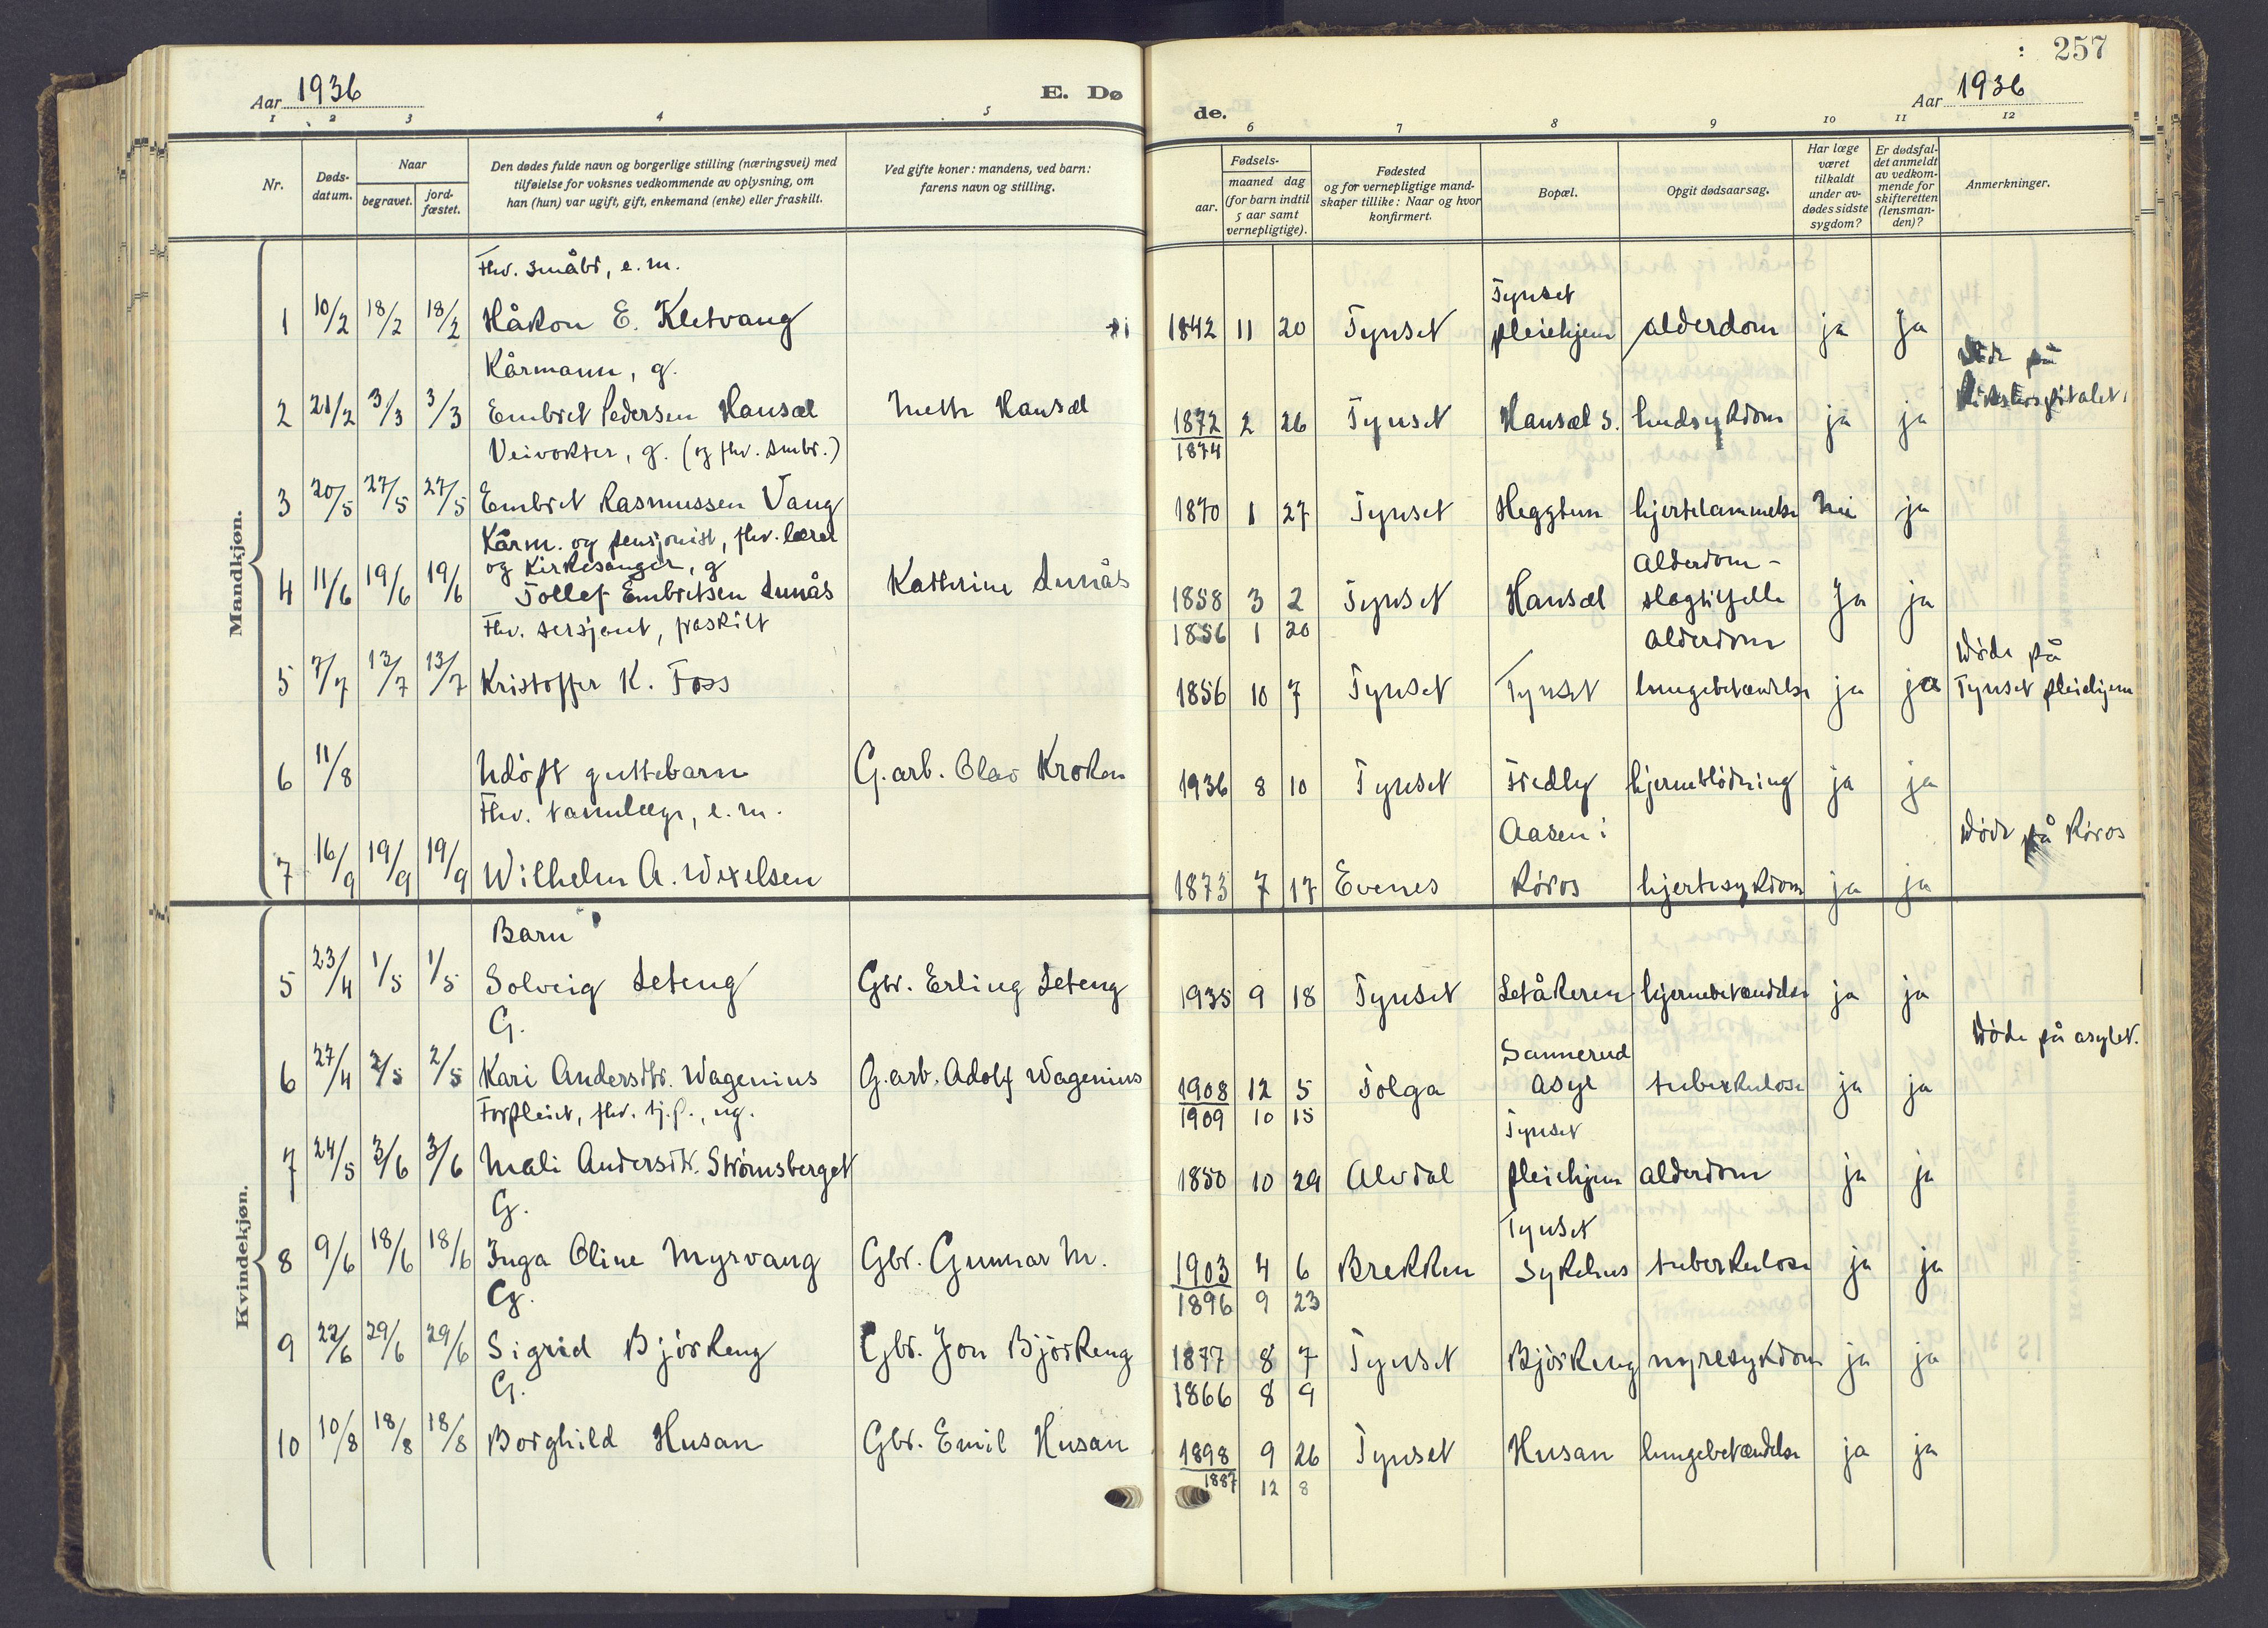 257
Aar 1936
E. Dø
de.
Aar 1936
1 2 3 4 5 6 7 8 9 10 11 12
Nr.
Døds-
datum.
Naar
begravet.
jord-
fæstet.
Den dødes fulde navn og borgerlige stilling (næringsvei) med
tilføielse for voksnes vedkommende av oplysning, om
han (hun) var ugift, gift, enkemand (enke) eller fraskilt.
Ved gifte koner: mandens, ved barn:
farens navn og stilling.
Fødsels-
aar.
maaned dag
(for barn indtil
5 aar samt
vernepligtige).
Fødested
og for vernepligtige mand-
skaper tillike: Naar og hvor
konfirmert.
Bopæl.
Opgit dødsaarsag.
Har læge
været
tilkaldt
under av-
dødes sidste
sygdom?
Er dødsfal-
det anmeldt
av vedkom-
mende for
skifteretten
(lensman-
den)?
Anmerkninger.
Mandkjøn.
Fhv. småbr, e.m.
Tynset
1 10/2 18/2 18/2 Håkon E. Kletvang 1842 11 20 Tynset pleiehjem alderdom ja Ja
Kårmann, g.
Døde på
Rikshospitalet.
2 21/2 3/3 3/3 Embret Pedersen Hansæl Meth Hansæl 1872 2 26 Tynset Hansæl s. hudsykdom ja ja
1874
Veivokter, g. (og fhv. smbr.)
3 20/5 27/5 27/5 Embret Rasmussen Vang 1870 1 27 Tynset Heggtun hjertelammelse Nei ja
Kårm. og pensjonist, fhv. lærer
og Kirkesanger, g
Alderdom -
4 11/6 19/6 19/6 Tollef Embretsen Lunås Kathrine Lunås 1858 3 2 Tynset Hansæl slagtilfelle Ja ja
1856 1 20
Fhv. sersjant, fraskilt
alderdom
Døde på
5 7/7 13/7 13/7 Kristoffer K. Foss 1856 10 7 Tynset Tynset lungebetændelse ja ja Tynset pleiehjem
6 11/8 Udøpt guttebarn G.arb. Olav Kroken 1936 8 10 Tynset Fredly hjerneblødning ja ja
Fhv. tannlæge, e.m.
Aasen i
Døde på Røros
7 16/9 19/9 19/9 Wilhelm A. Wexelsen 1873 7 17 Evenes Røros hjertesykdom ja ja
Kvindekjøn.
Barn
5 23/4 1/5 1/5 Solveig Leteng Gbr. Erling Leteng 1935 9 18 Tynset Letåkeren hjernebetændelse ja ja
G.
Sannerud
Døde på asylet.
6 27/4 2/5 2/5 Kari Andersdtr. Wagenius G.arb. Adolf Wagenius 1908 12 5 Tolga asyl tuberkulose ja ja
1909 10 15
Forpleiet, fhv. tj.p., ug.
Tynset
7 24/5 3/6 3/6 Mali Andersdtr. Strømsberget 1850 10 29 Alvdal pleiehjem alderdom ja ja
G.
Tynset
8 9/6 18/6 18/6 Inga Oline Myrvang Gbr. Gunnar M. 1903 4 6 Brekken Sykehus tuberkulose ja ja
1896 9 23
G.
9 22/6 29/6 29/6 Sigrid Bjørkeng Gbr. Jon Bjørkeng 1877 8 7 Tynset Bjørkeng nyresykdom ja ja
1866 8 9
G.
10 10/8 18/8 18/8 Borghild Husan Gbr. Emil Husan 1898 9 26 Tynset Husan lungebetændelse ja ja
1887 12 8